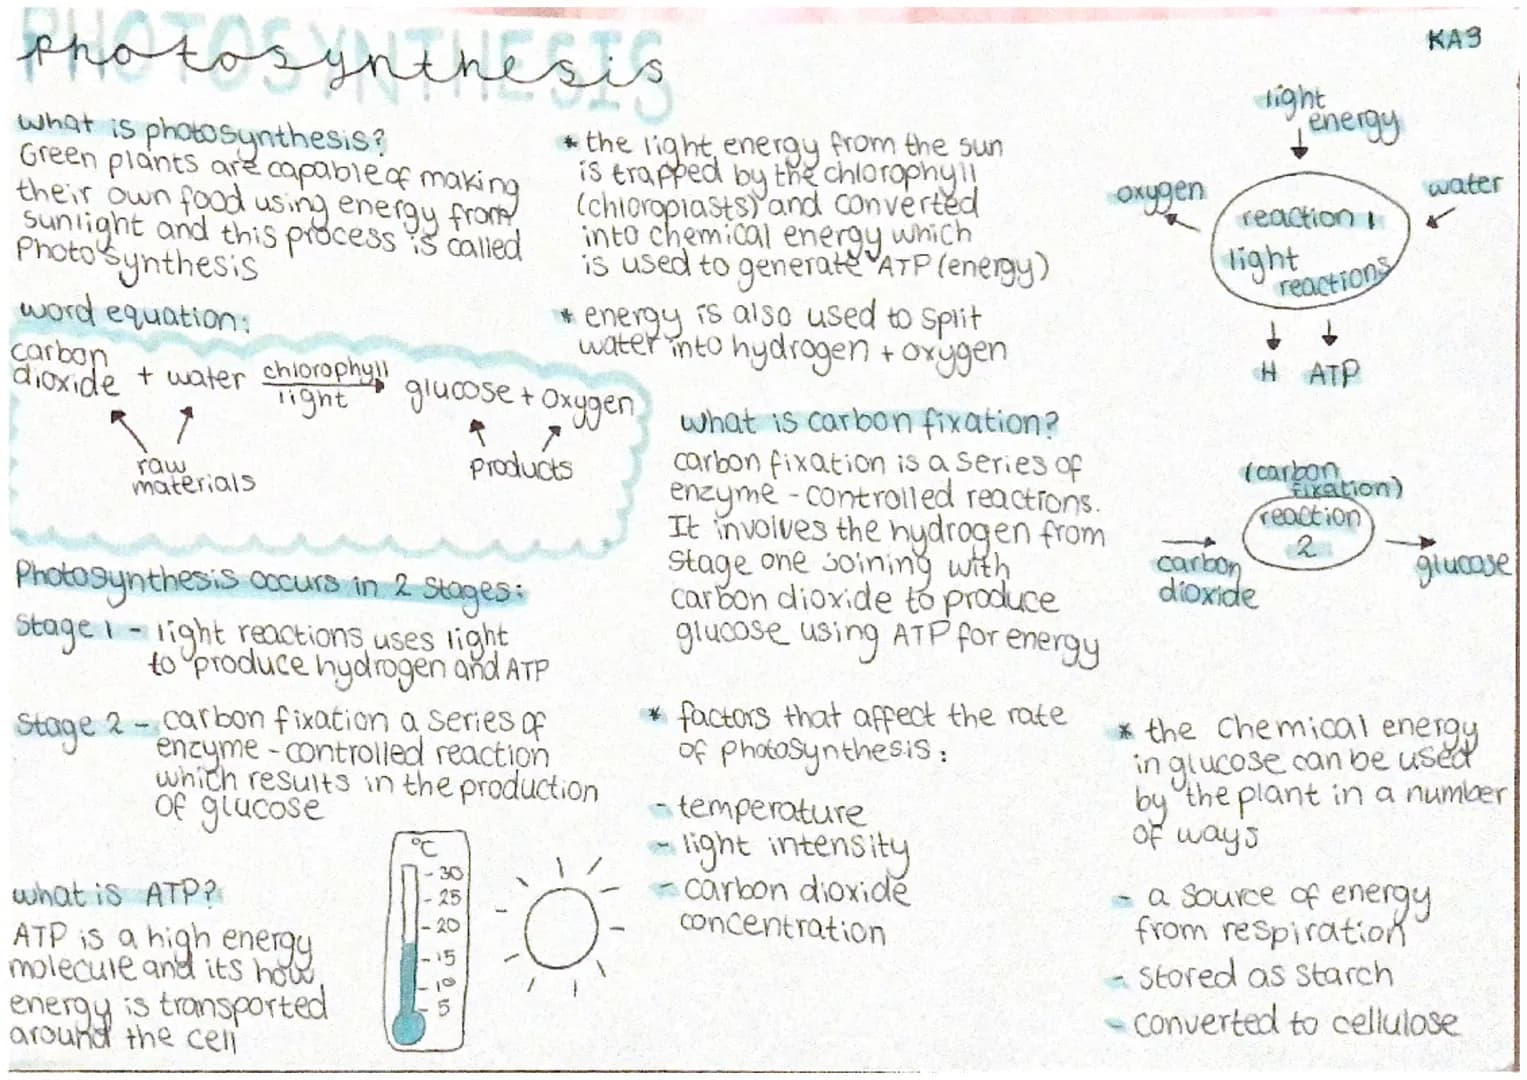 PHOTOSYNTHESIS
photosynthesis
KA3
what is photosynthesis?
Green plants are capable of making
their own food using energy from
sunlight and this process is called
Photosynthesis
word equation:
carbon
dioxide + water chlorophyll
light
glucose + oxygen
raw
materials
products
Photosynthesis occurs in 2 stages:
Stage 1 - light reactions uses light
to produce hydrogen and ATP
Stage 2 - carbon fixation a series of
enzyme-controlled reaction
which results in the production
of glucose
what is ATP?
ATP is a high energy
molecule and its how
energy is transported
around the cell
°C
- 30
- 25
- 20
- 15
- 10
- 5
* the light energy from the sun
is trapped by the chlorophyll
(chloroplasts) and converted
into chemical energy which
is used to generate ATP (energy)
* energy is also used to split
water into hydrogen + oxygen
what is carbon fixation?
carbon fixation is a series of
enzyme-controlled reactions.
It involves the hydrogen from
stage one joining with
carbon dioxide to produce
glucose using ATP for energy
* factors that affect the rate
of photosynthesis:
- temperature
- light intensity
- carbon dioxide
concentration
light
energy
oxygen
water
reaction 1
light
reactions
H ATP
(carbon
fixation)
reaction
2
carbon
dioxide
glucose
* the chemical energy
in glucose can be used
by the plant in a number
of ways
- a source of energy
from respiration
- stored as starch
- converted to cellulose